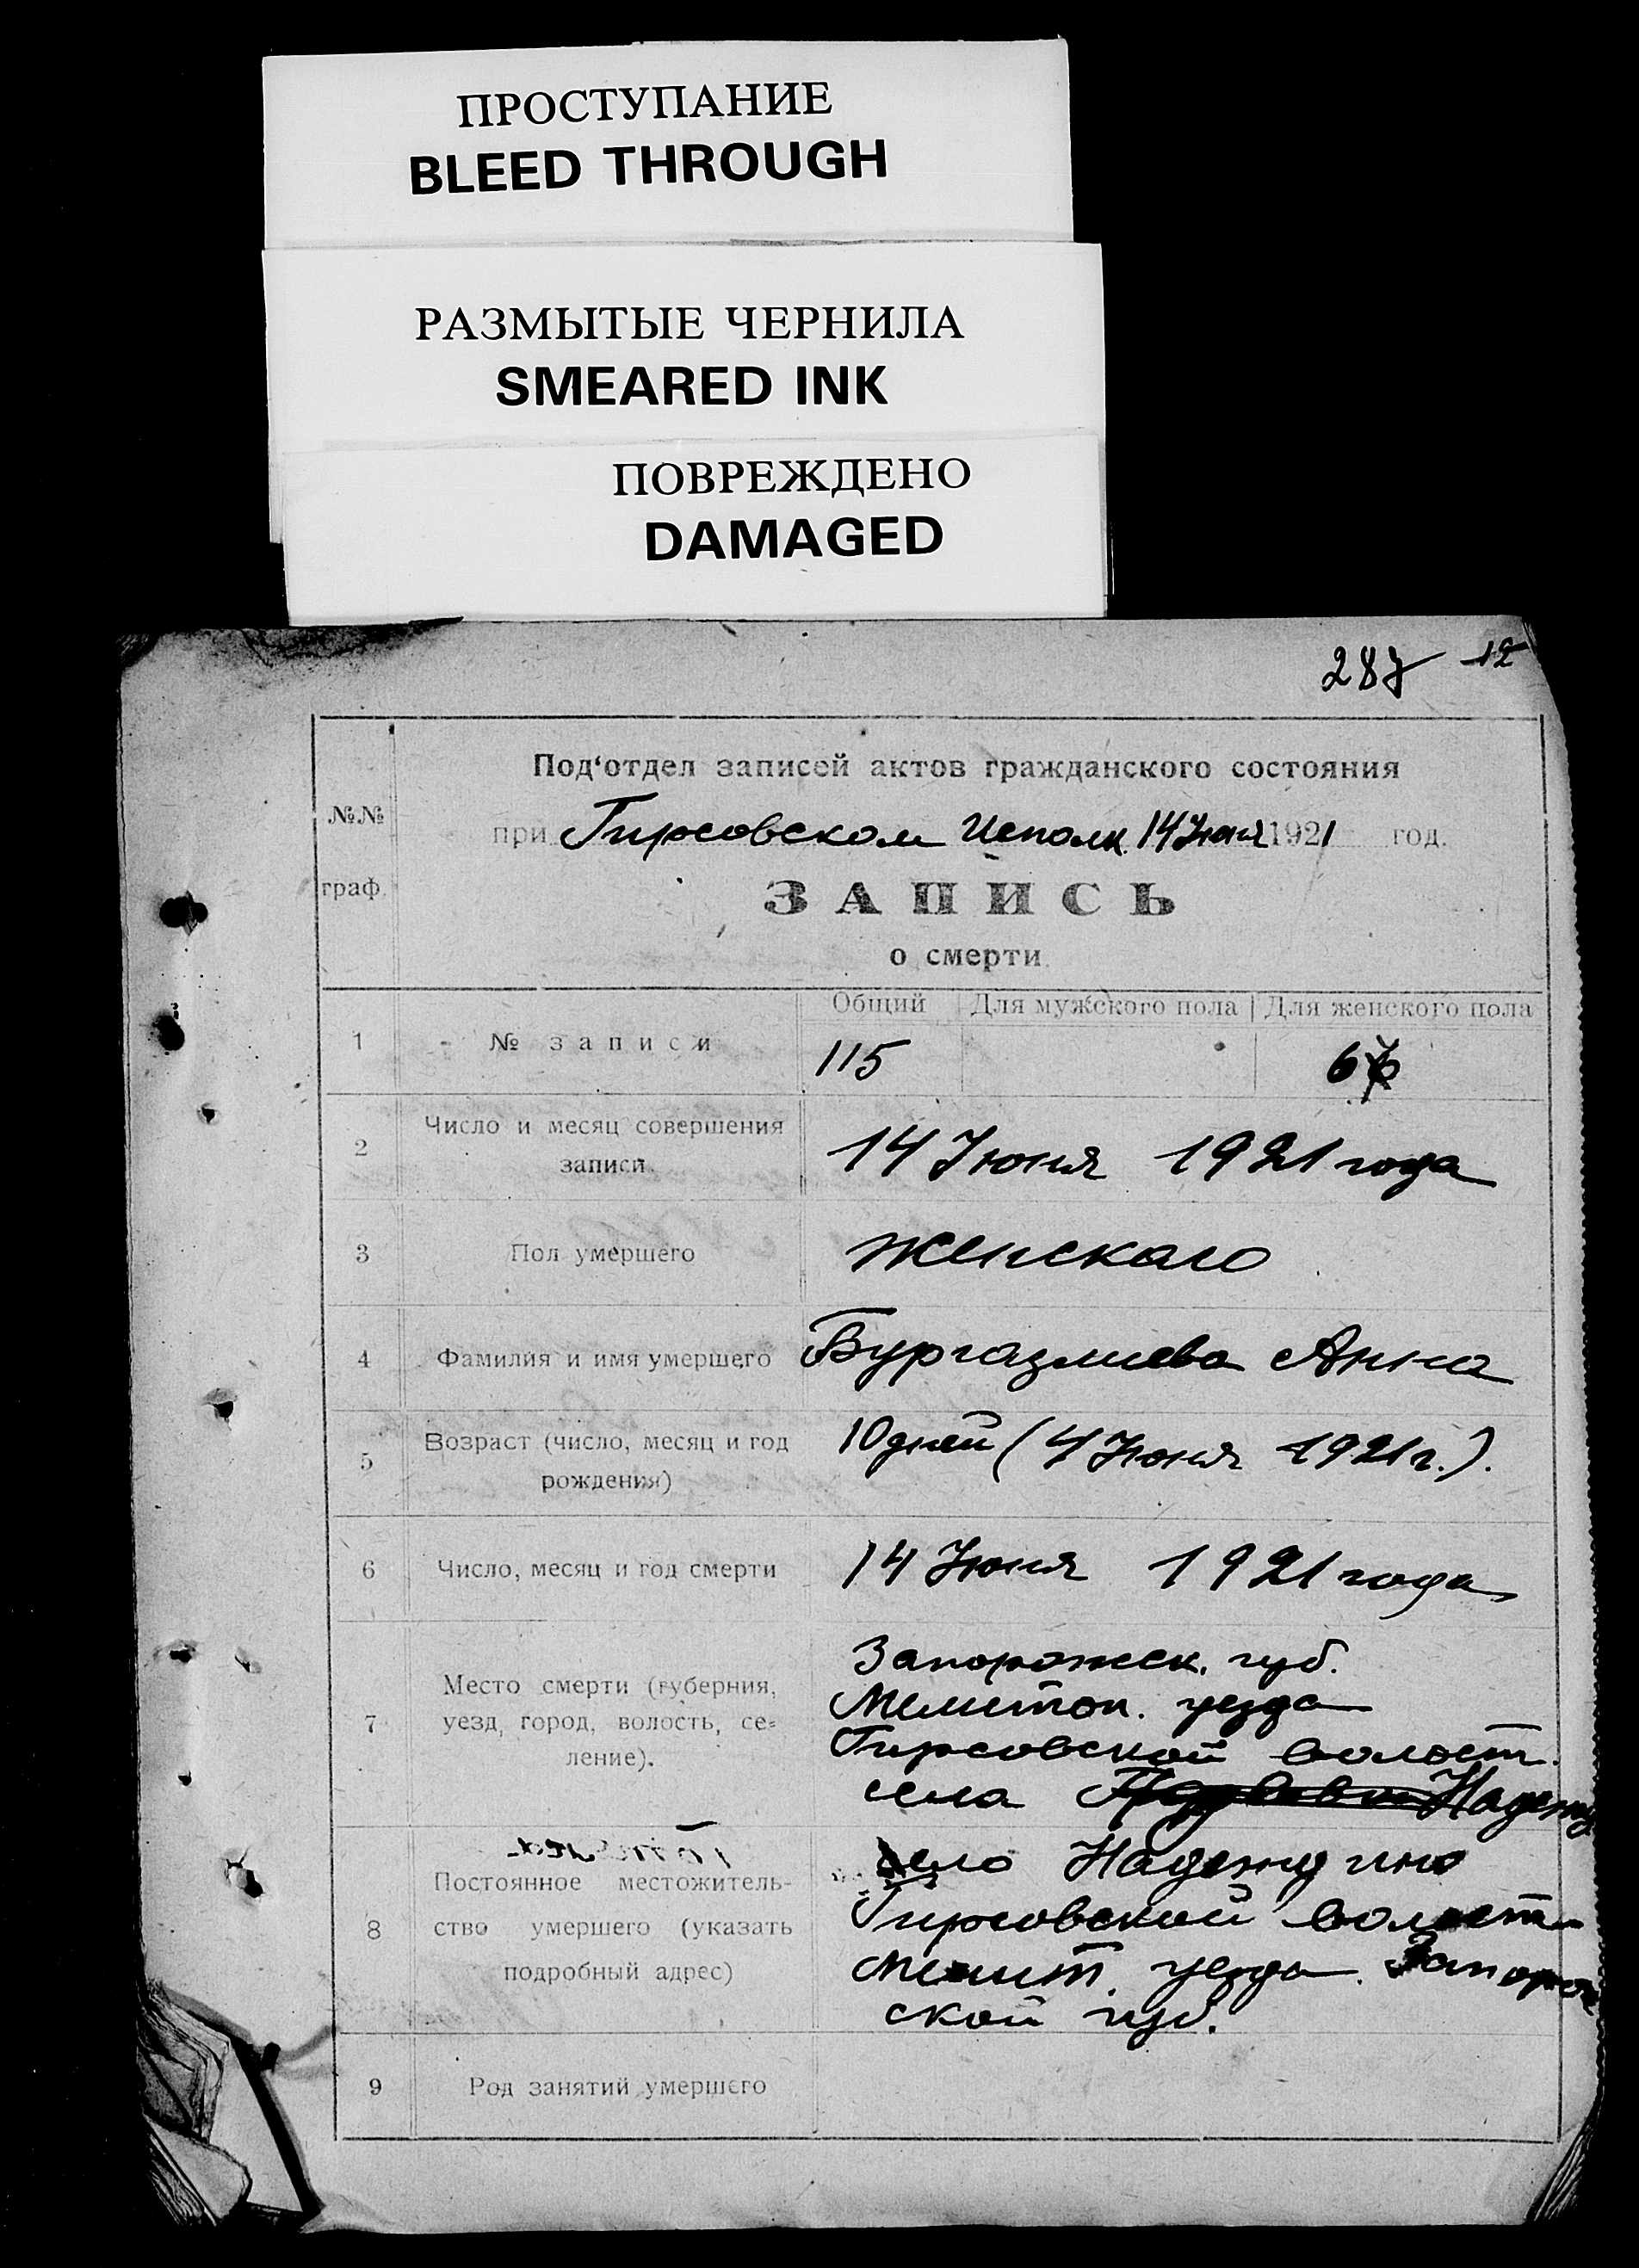 ПРОСТУПАНИЕ
BLEED THROUGH
РАЗМЫТЫЕ ЧЕРНИЛА
SMEARED INK
ПОВРЕЖДЕНО
DAMAGED
287 12
№№ граф.
Под‘отдел записей актов гражданского состояния
при Гирсовском Исполк. 14 Июня 1921 год.
ЗАПИСЬ
о смерти
Общий Для мужского пола Для женского пола
1 № записи 115
2 Число и месяц совершения
записи. 14 Июня 1921 года
3 Пол умершего женскаго
4 Фамилия и имя умершего Бургазлиева Анна
5 Возраст (число, месяц и год
рождения) 10 дней (4 Июня 1921 г.).
6 Число, месяц и год смерти 14 Июня 1921 года
Запорожск. губ.
7 Место смерти (губерния,
уезд, город, волость, се-
ление).
Мелитоп. уезда
Гирсовской волост.
села Надежд
8 Постоянное местожитель-
ство умершего (указать
подробный адрес)
село Надеждино
Гирсовской волости
Мелит. уезда. Запорож
ской губ.
9 Род занятий умершего